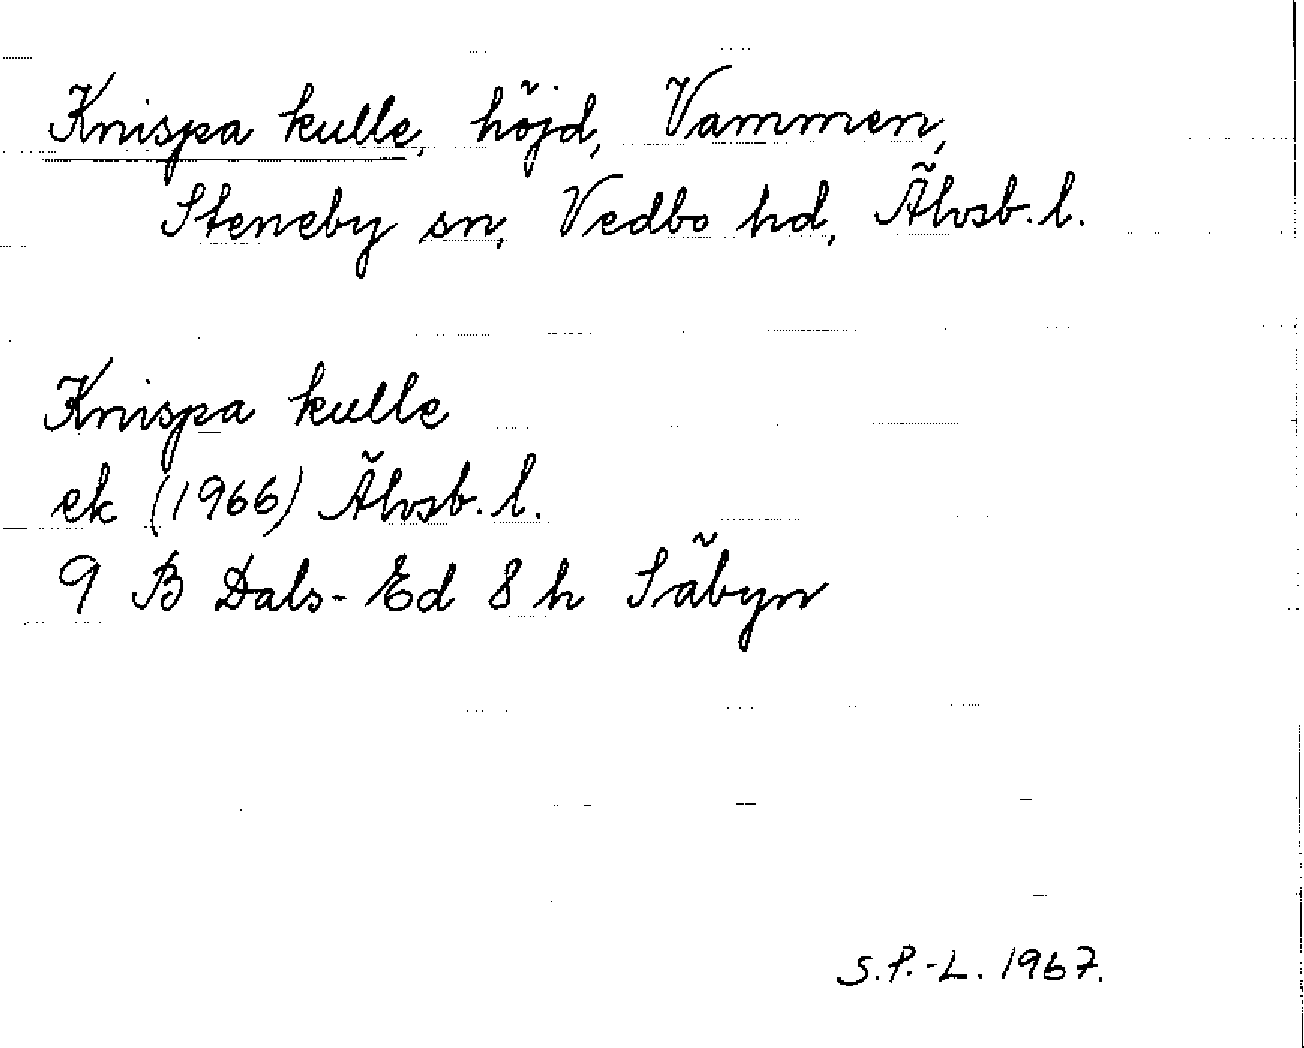 Knispa kulle, höjd, Vammen,
Steneby sn, Vedbo hd, Älvsb. l.
Knispa kulle
ek (1966) Älvsb. l.
9 B Dals-Ed 8 h Säbyn
S.P.-L. 1967.